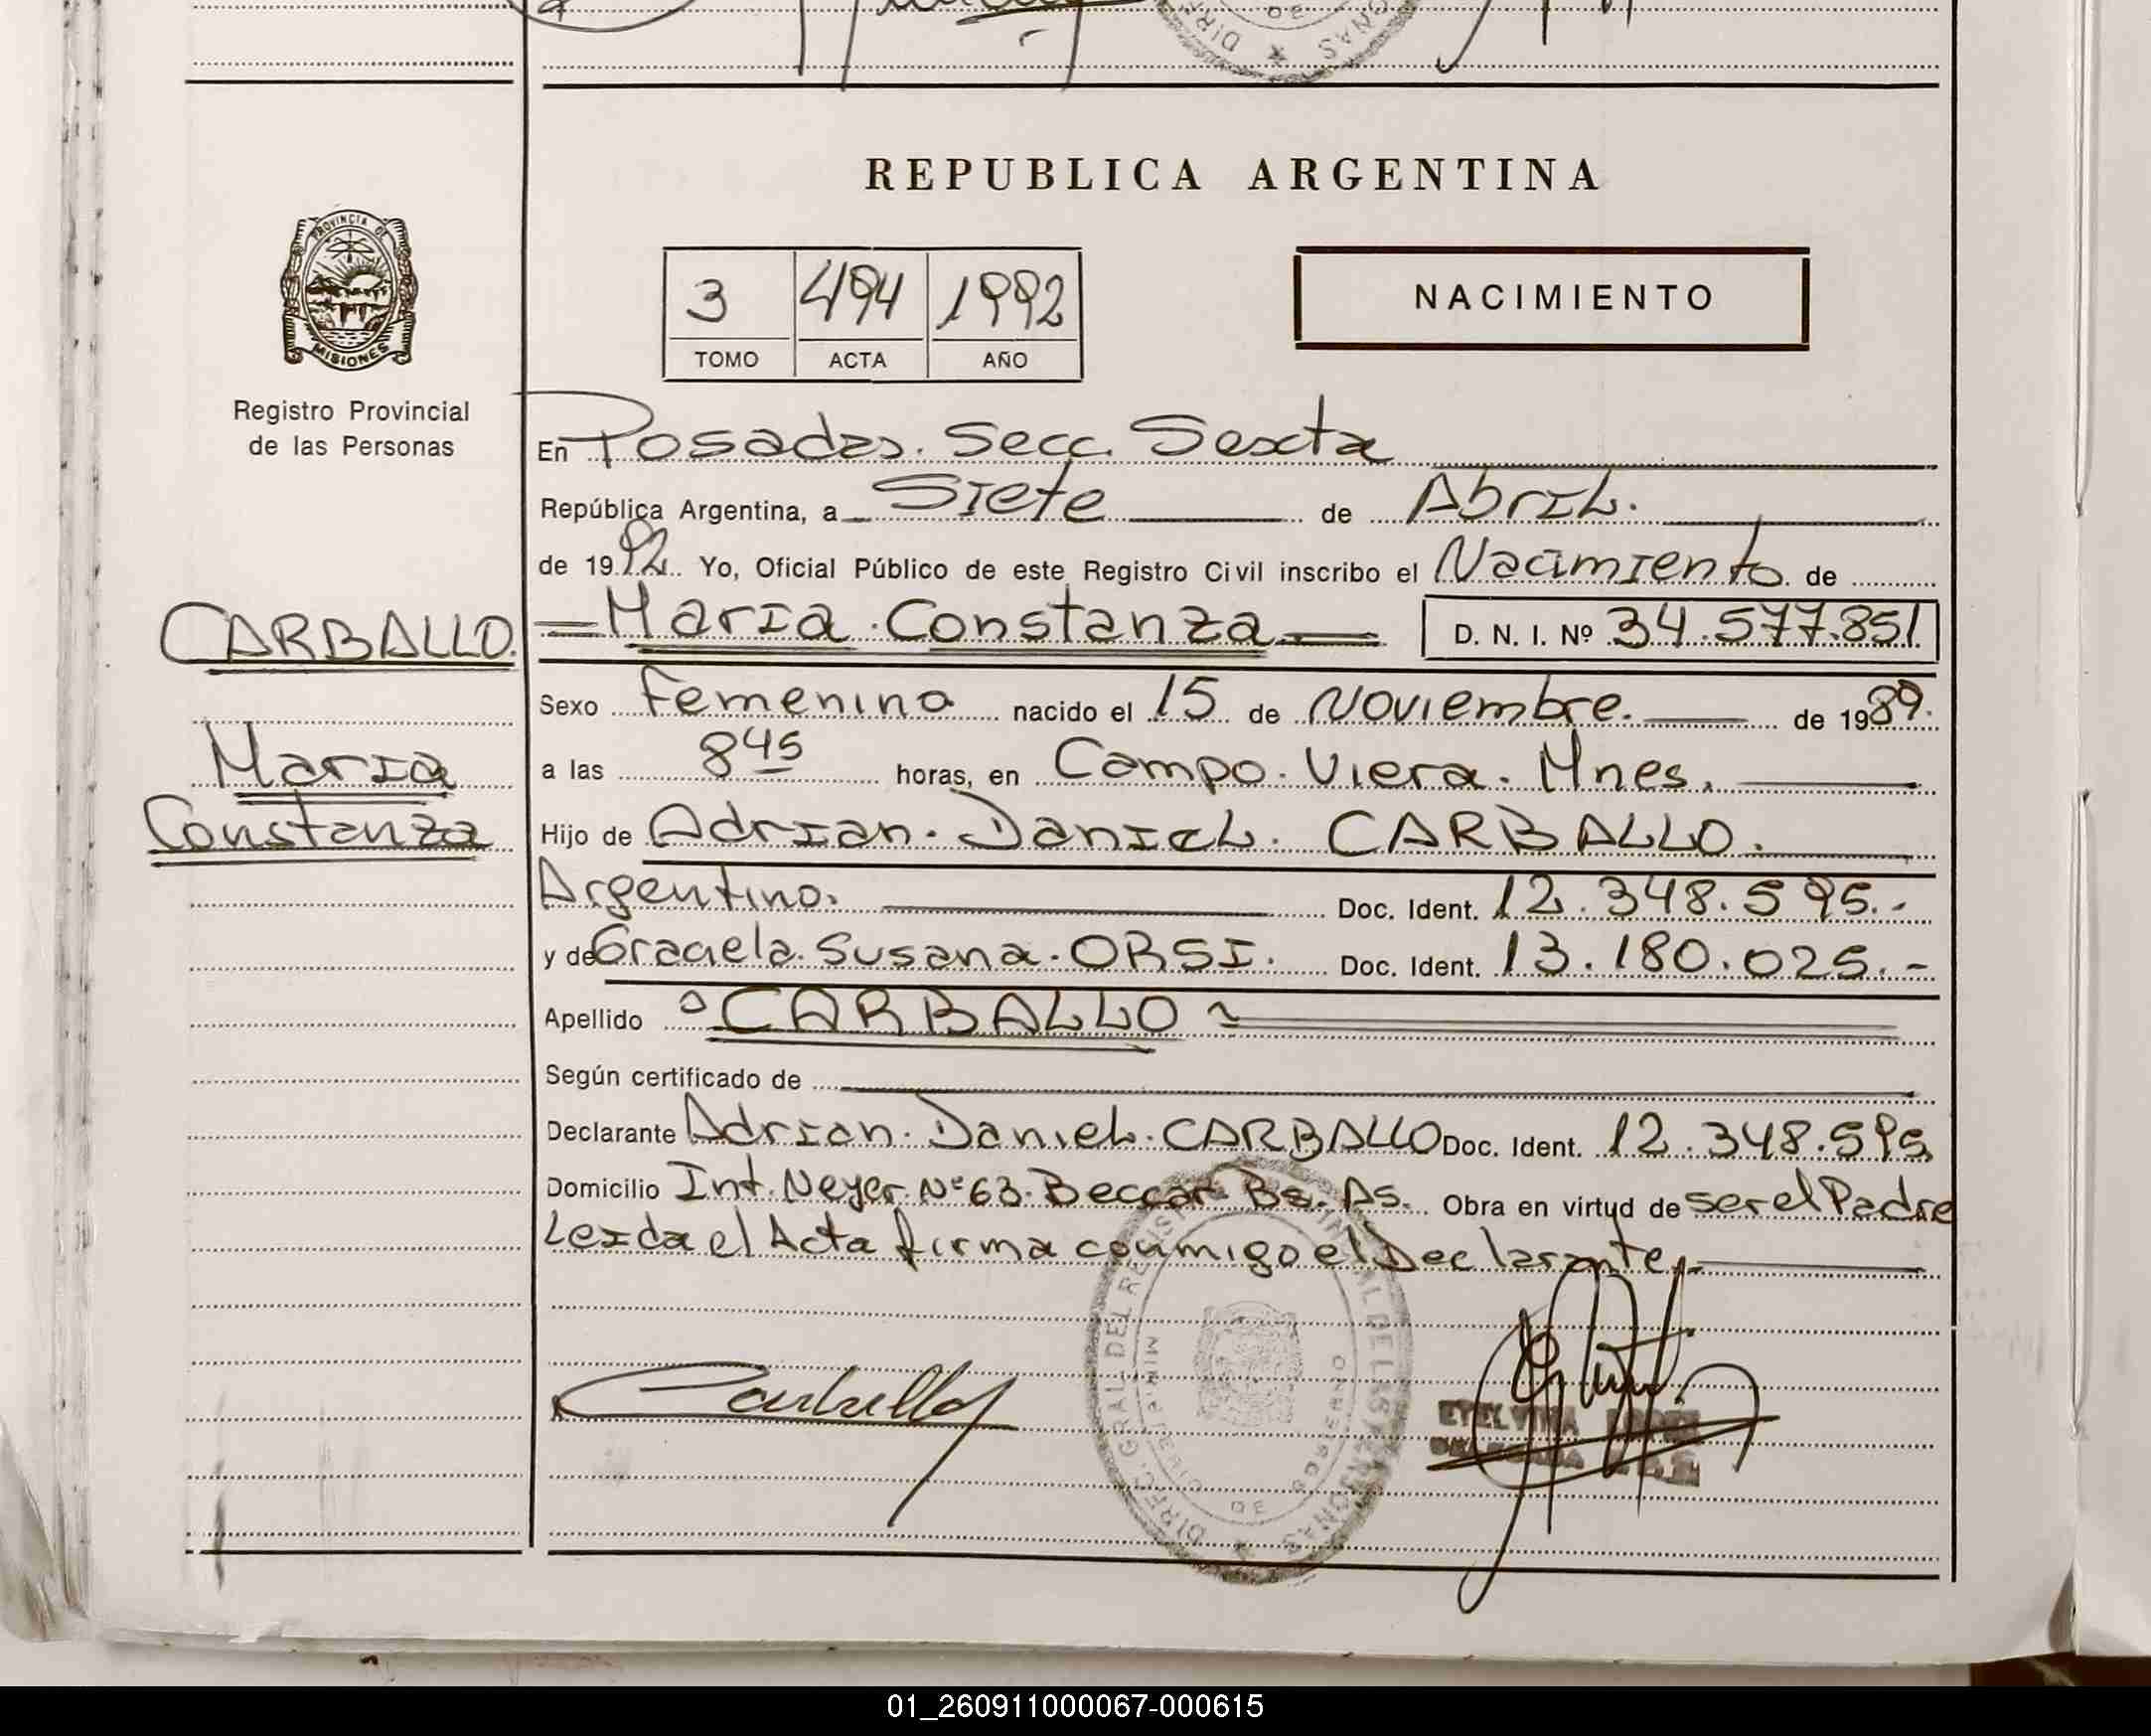 REPUBLICA ARGENTINA
PROVINCIA DE
MISIONES
Registro Provincial
de las Personas
3 494 1992
TOMO ACTA AÑO
NACIMIENTO
En Posadas. Secc. Sexta
República Argentina, a Siete de Abril.
de 1992. Yo, Oficial Público de este Registro Civil inscribo el Nacimiento de
CARBALLO.
Maria Constanza D. N. I. Nº 34.577.851
Sexo Femenino nacido el 15 de Noviembre. de 1989.
Maria
a las 8 45 horas, en Campo. Viera. Mnes.
Constanza
Hijo de Adrian. Daniel. CARBALLO.
Argentino. Doc. Ident. 12.348.595.-
y de Graciela. Susana. ORSI. Doc. Ident. 13.180.025.-
Apellido CARBALLO
Según certificado de
Declarante Adrian. Daniel. CARBALLO Doc. Ident. 12.348.595
Domicilio Int. Neyer. Nº 63. Beccar Bs. As. Obra en virtud de ser el Padre
Leida el Acta firma conmigo el Declarante,
Carballo
01_260911000067-000615